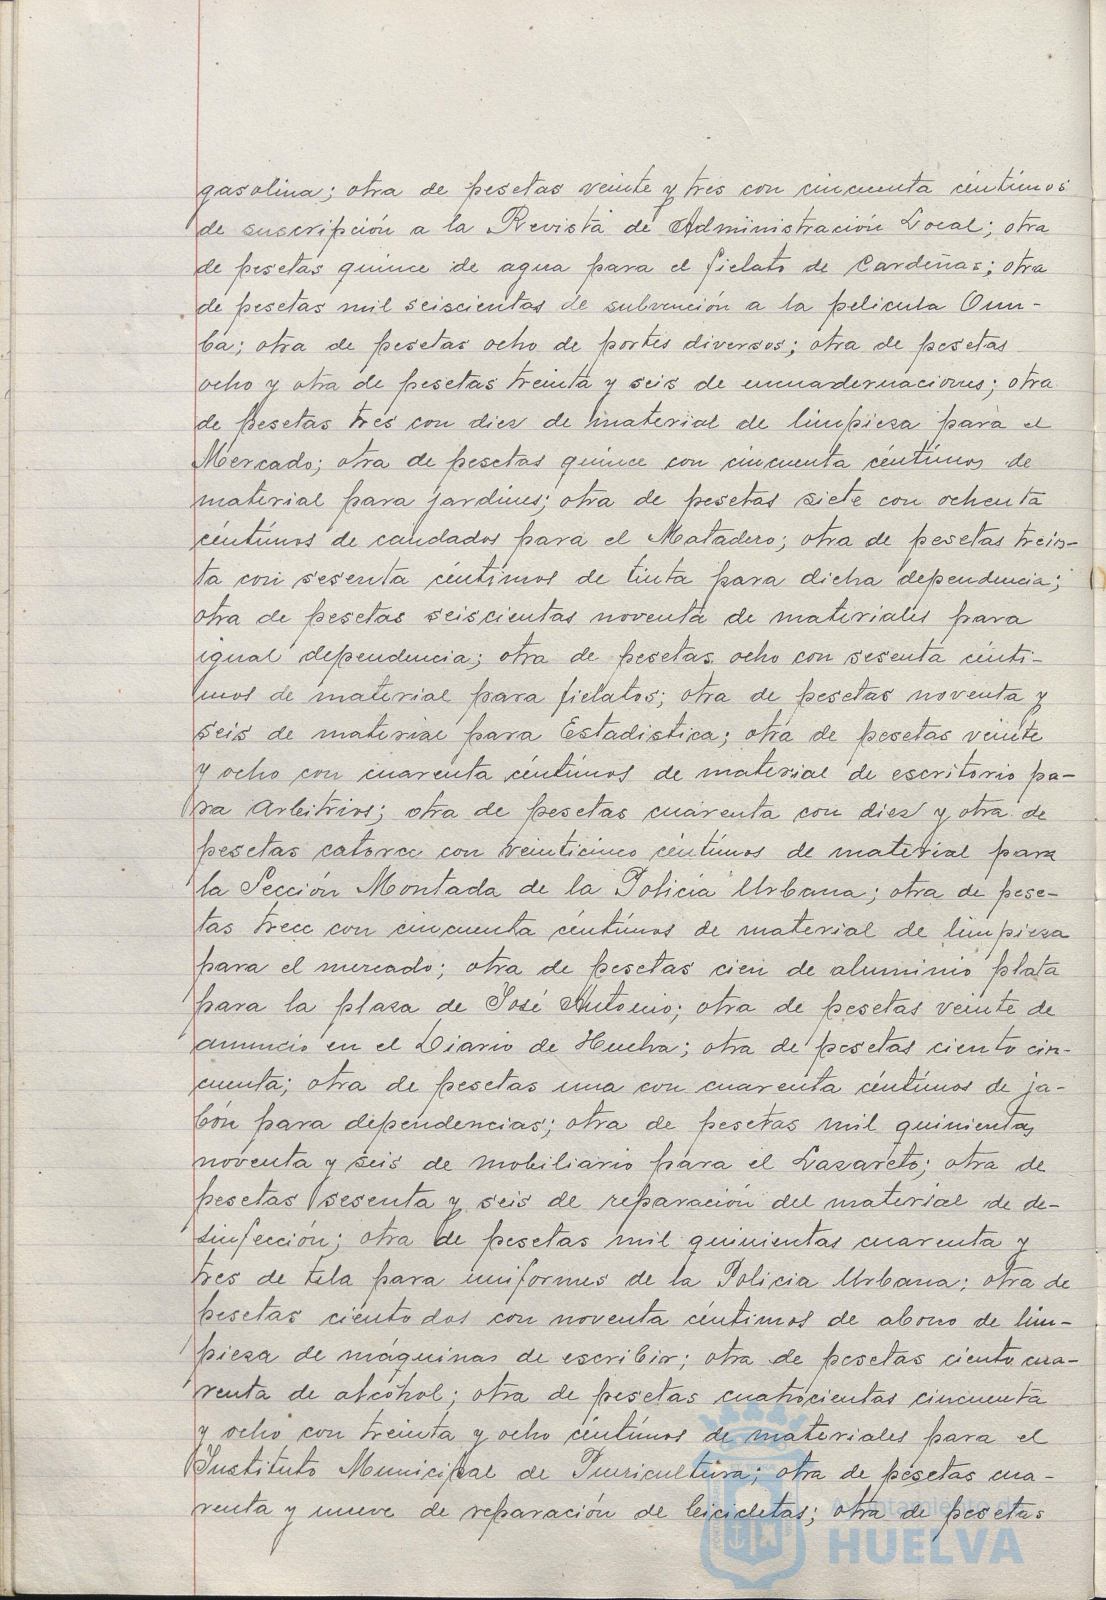 gasolina; otra de pesetas veinte y tres con cincuenta céntimos
de suscripción a la Revista de Administración Local; otra
de pesetas quince de agua para el fielato de Cardeñas; otra
de pesetas mil seiscientas de subvención a la pelicula Onu-
ba; otra de pesetas ocho de portes diversos; otra de pesetas
ocho y otra de pesetas treinta y seis de encuadernaciones; otra
de pesetas tres con diez de material de limpieza para el
Mercado; otra de pesetas quince con cincuenta céntimos de
material para jardines; otra de pesetas siete con ochenta
céntimos de candados para el Matadero; otra de pesetas trein-
ta con sesenta céntimos de tinta para dicha dependencia;
otra de pesetas seiscientas noventa de materiales para
igual dependencia; otra de pesetas ocho con sesenta cénti-
mos de material para fielatos; otra de pesetas noventa y
seis de material para Estadistica; otra de pesetas veinte
y ocho con cuarenta céntimos de material de escritorio pa-
ra Arbitrios; otra de pesetas cuarenta con diez y otra de
pesetas catorce con veinticinco céntimos de material para
la Sección Montada de la Policia Urbana; otra de pese-
tas trece con cincuenta céntimos de material de limpieza
para el mercado; otra de pesetas cien de aluminio plata
para la plaza de José Antonio; otra de pesetas veinte de
anuncio en el Diario de Huelva; otra de pesetas ciento cin-
cuenta; otra de pesetas una con cuarenta céntimos de ja-
bón para dependencias; otra de pesetas mil quinientas
noventa y seis de mobiliario para el Lazareto; otra de
pesetas sesenta y seis de reparación del material de de-
sinfección; otra de pesetas mil quinientas cuarenta y
tres de tela para uniformes de la Policia Urbana; otra de
pesetas ciento dos con noventa céntimos de abono de lim-
pieza de máquinas de escribir; otra de pesetas ciento cua-
renta de alcohol; otra de pesetas cuatrocientas cincuenta
y ocho con treinta y ocho céntimos de materiales para el
Instituto Municipal de Puericultura; otra de pesetas cua-
renta y nueve de reparación de bicicletas; otra de pesetas
Ayuntamiento de
HUELVA